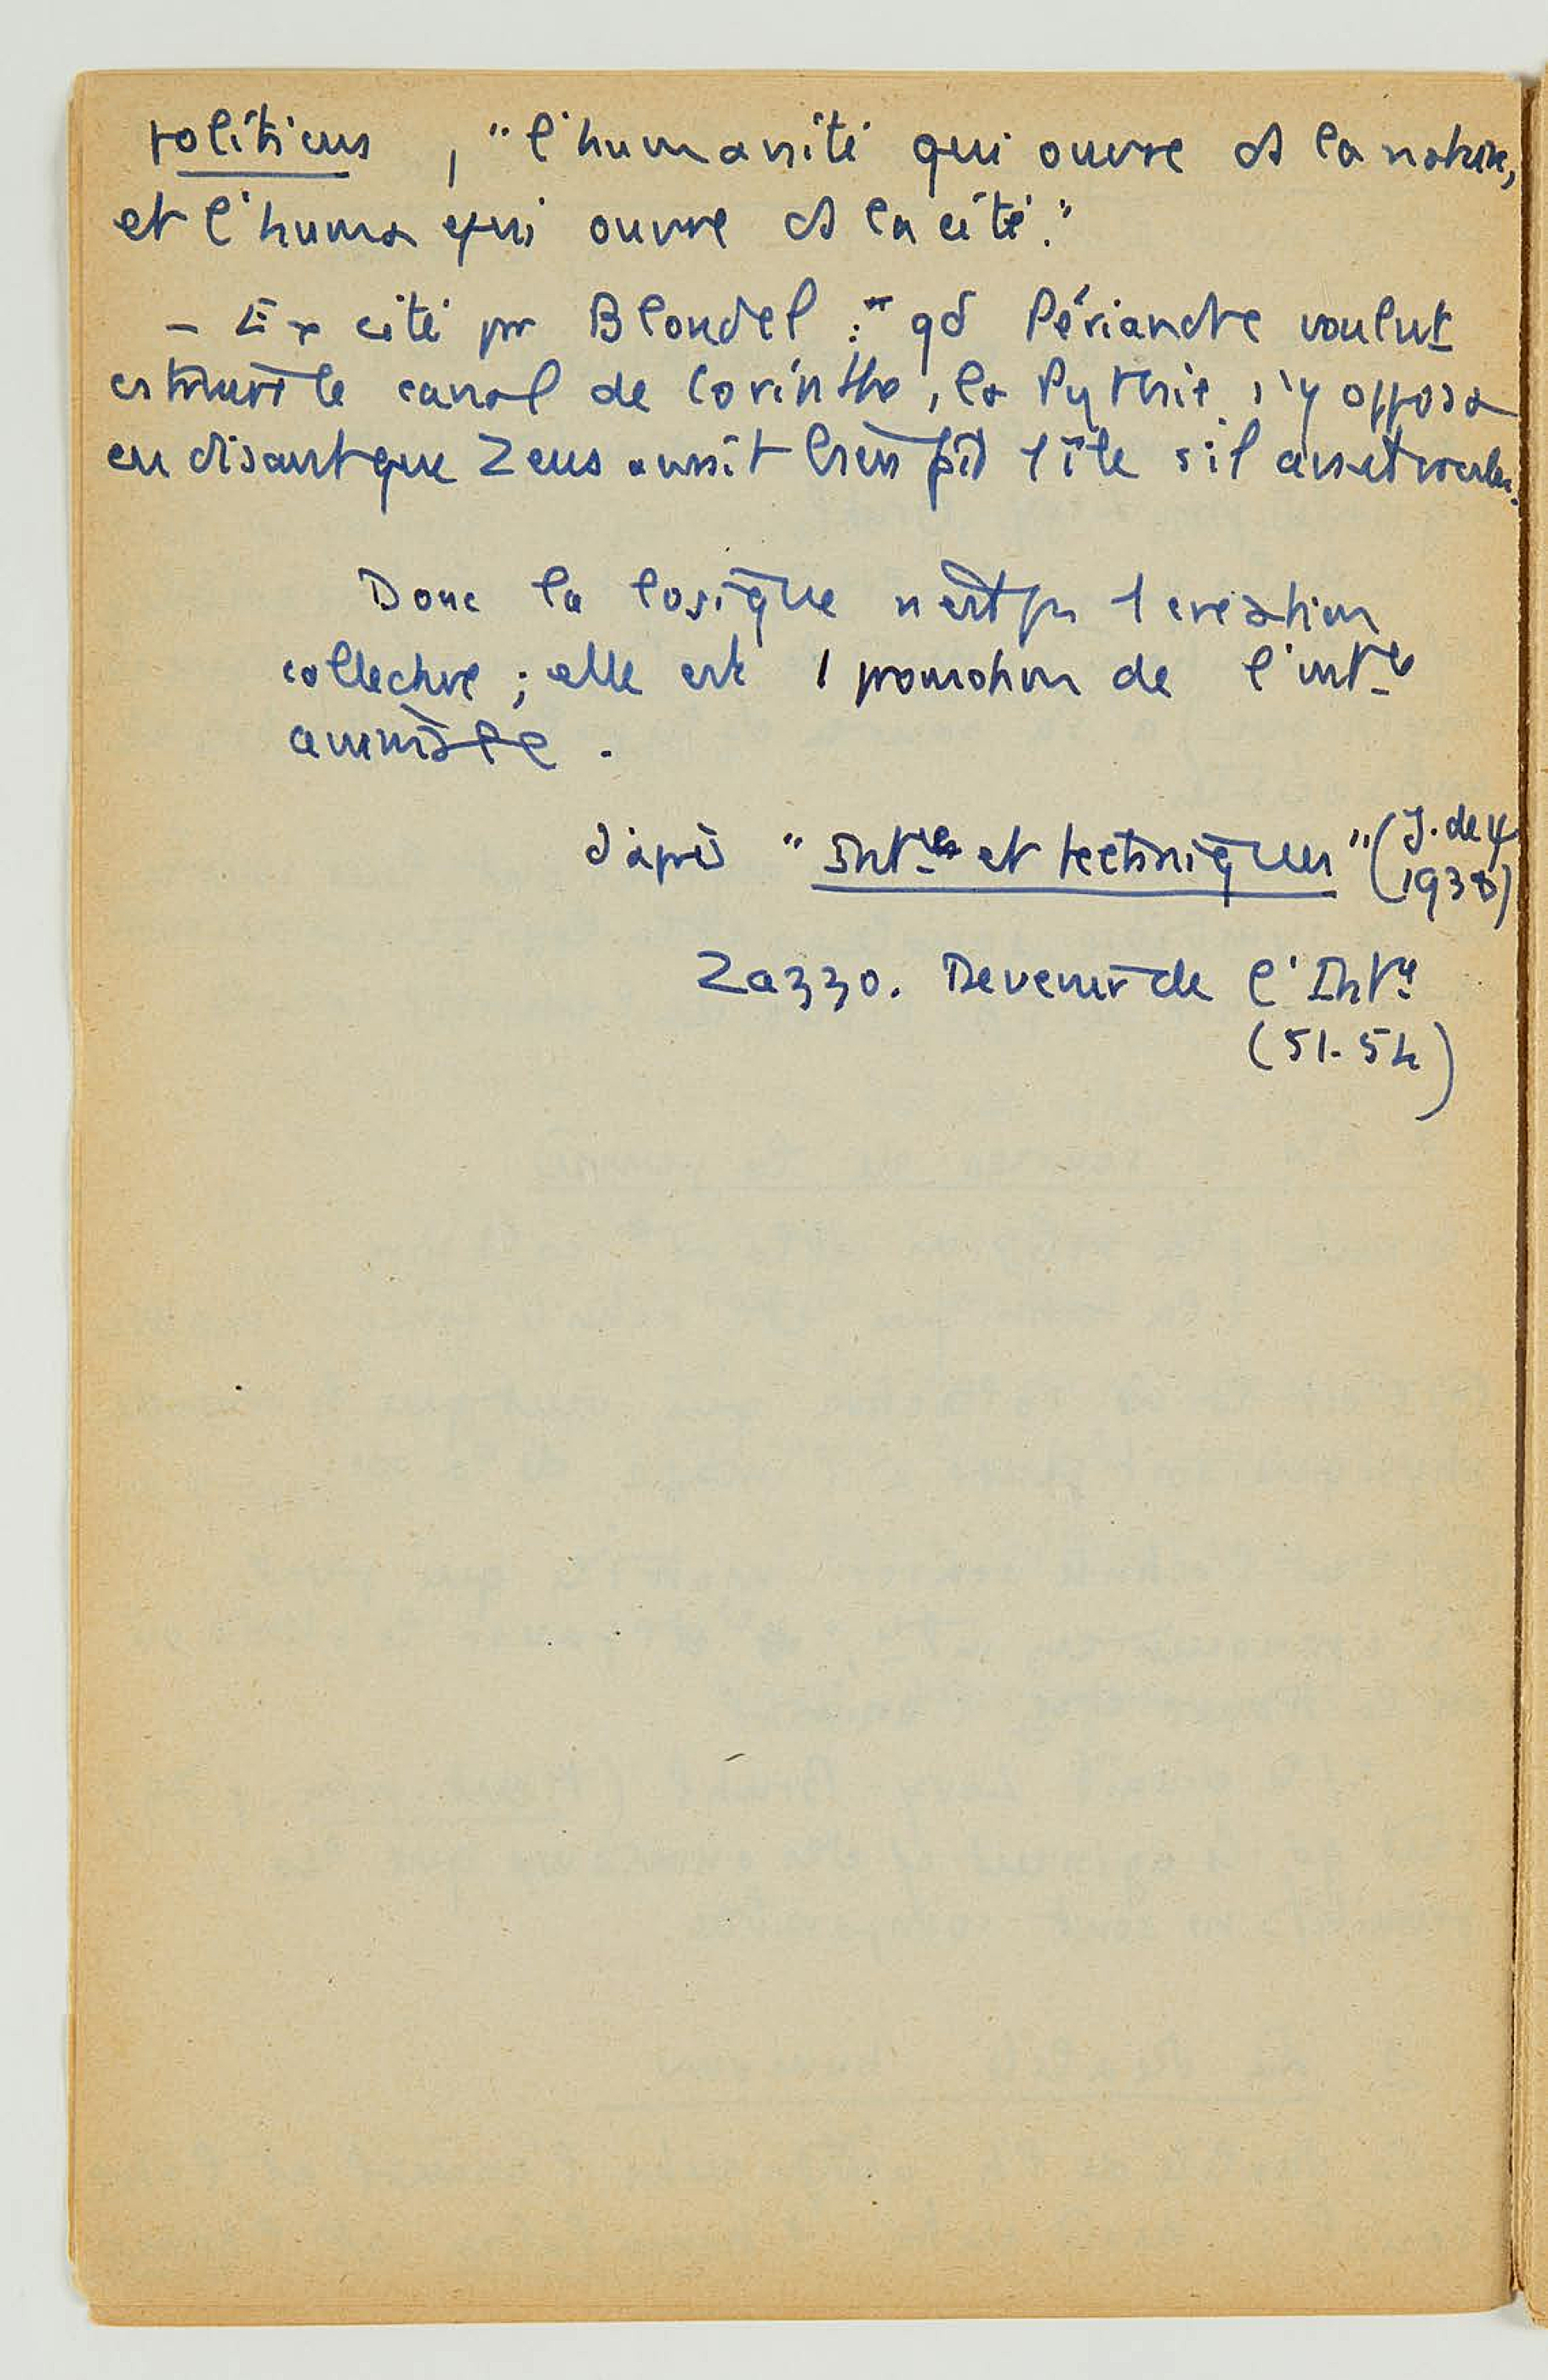 politicus, "l'humanité qui ouvre à la nature,
et l'huma qui ouvre à la cité."
- Ex cité par Blondel : "qd Périandre voulut
le canal de Corinthe, la Pythie s'y opposa
en disant que Zeus aurait bien fait 1 île s'il avait voulu.
Donc la logique n'est pas 1 création
collective ; elle est 1 promotion de l'intce
animale.
d'après "Intce et techniques" (J. de ψ
1938)
Zazzo. Devenir de l'Intce
(51-54)